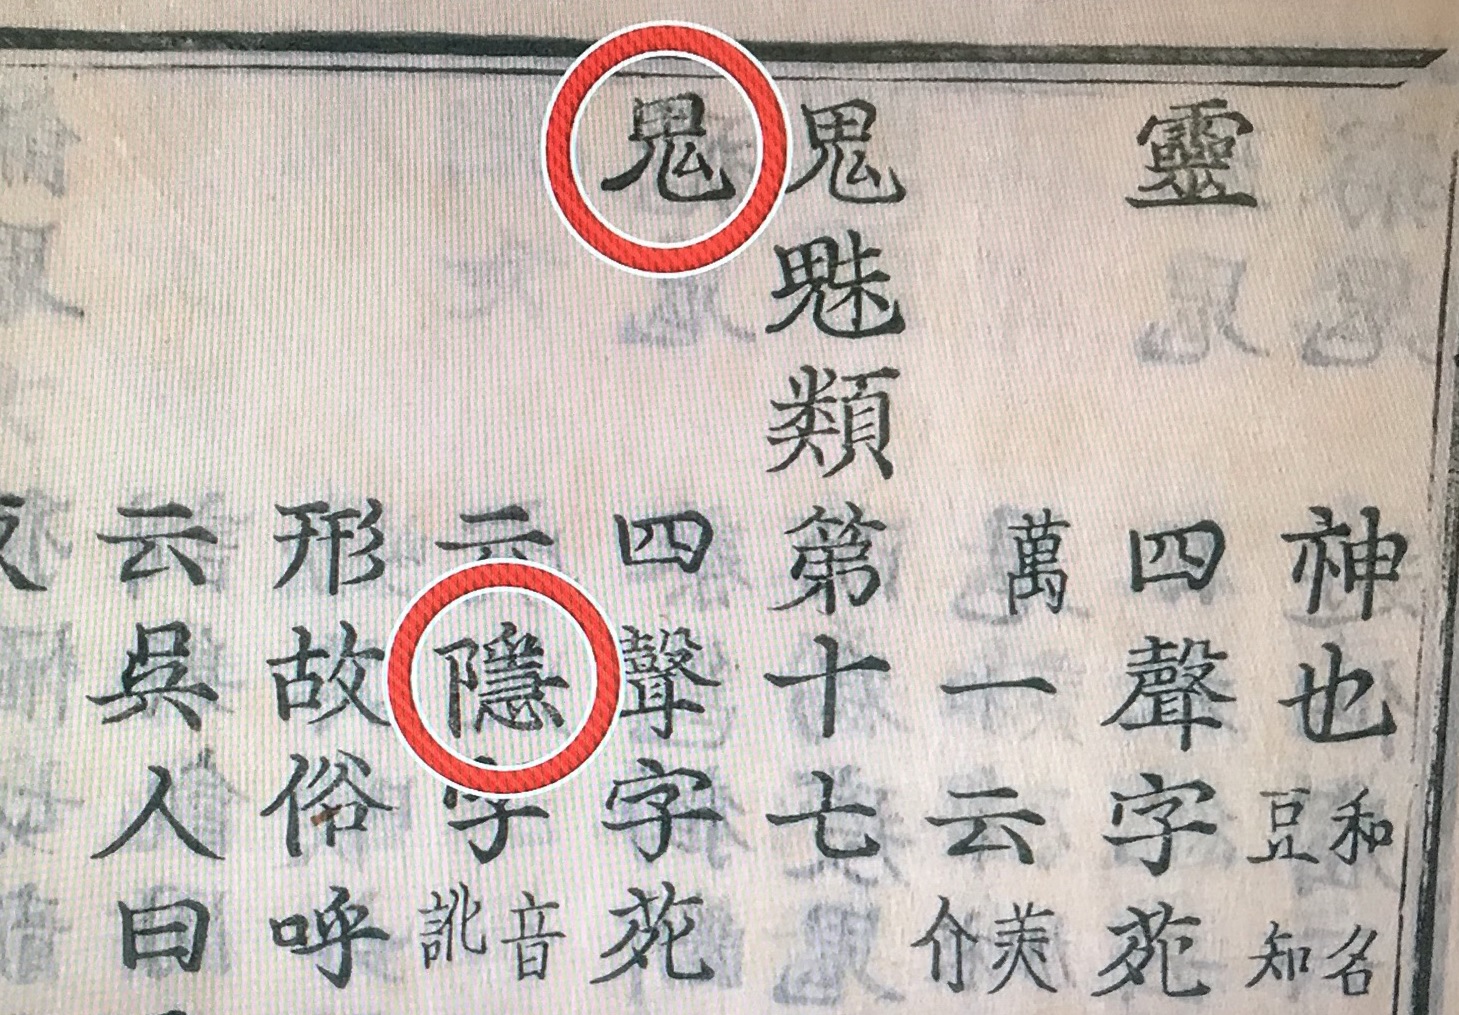 神也和名豆知
靈四聲字苑
萬一云美介
鬼魅類第十七
鬼四聲字苑
云隱字音訛
形故俗呼
云吳人曰